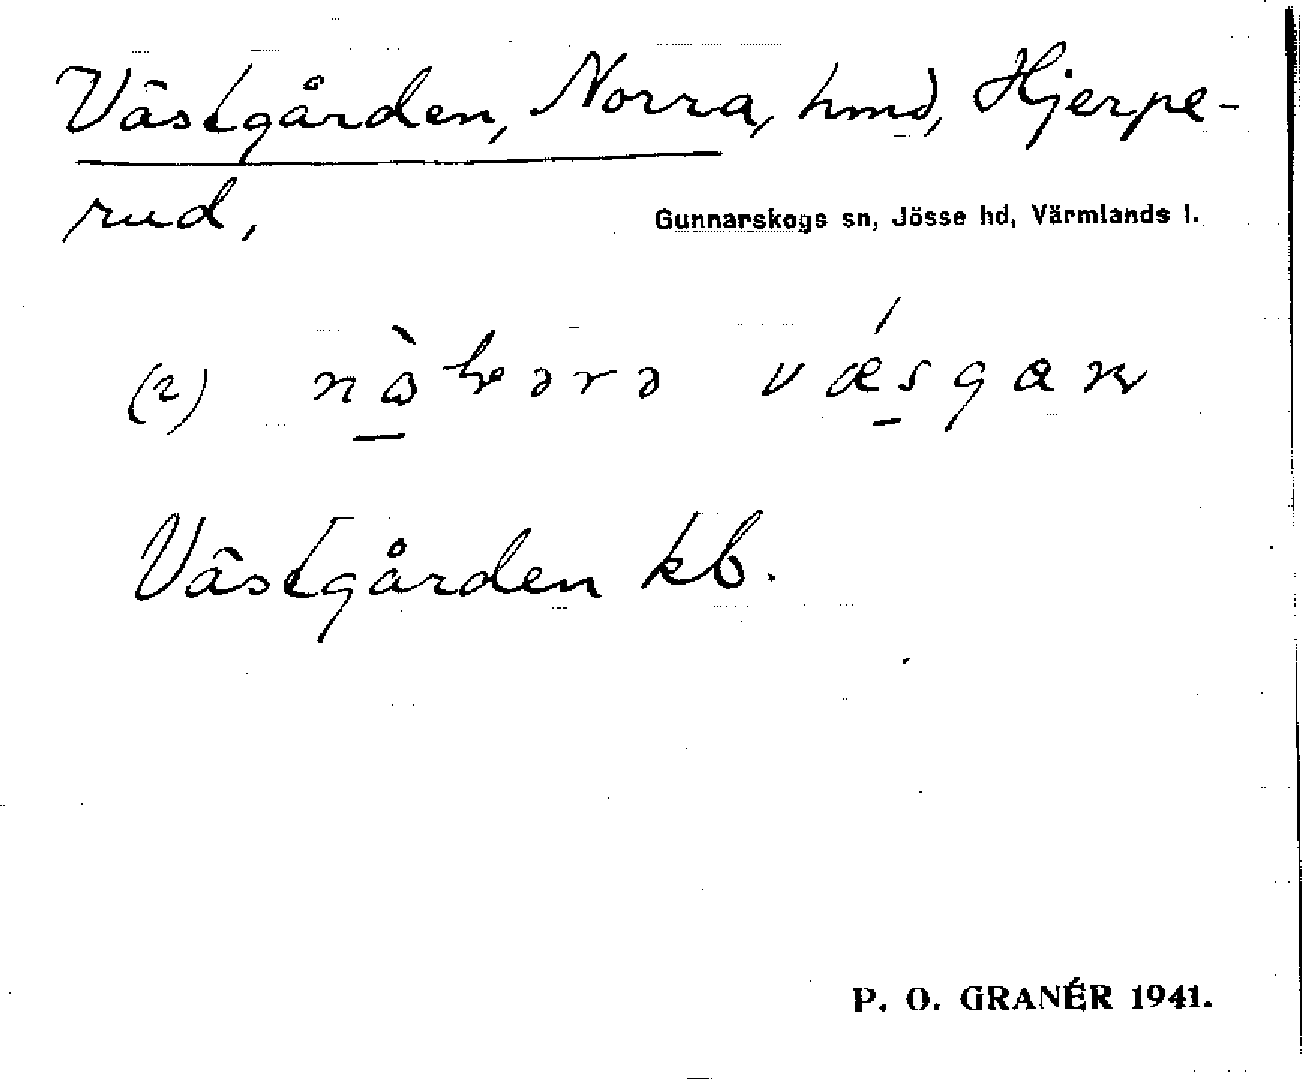 Västgården, Norra, hmd, Hjerpe-
rud,
Gunnarskogs sn, Jösse hd, Värmlands l.
(2)
Västgården kb.
P. O. GRANÉR 1941.